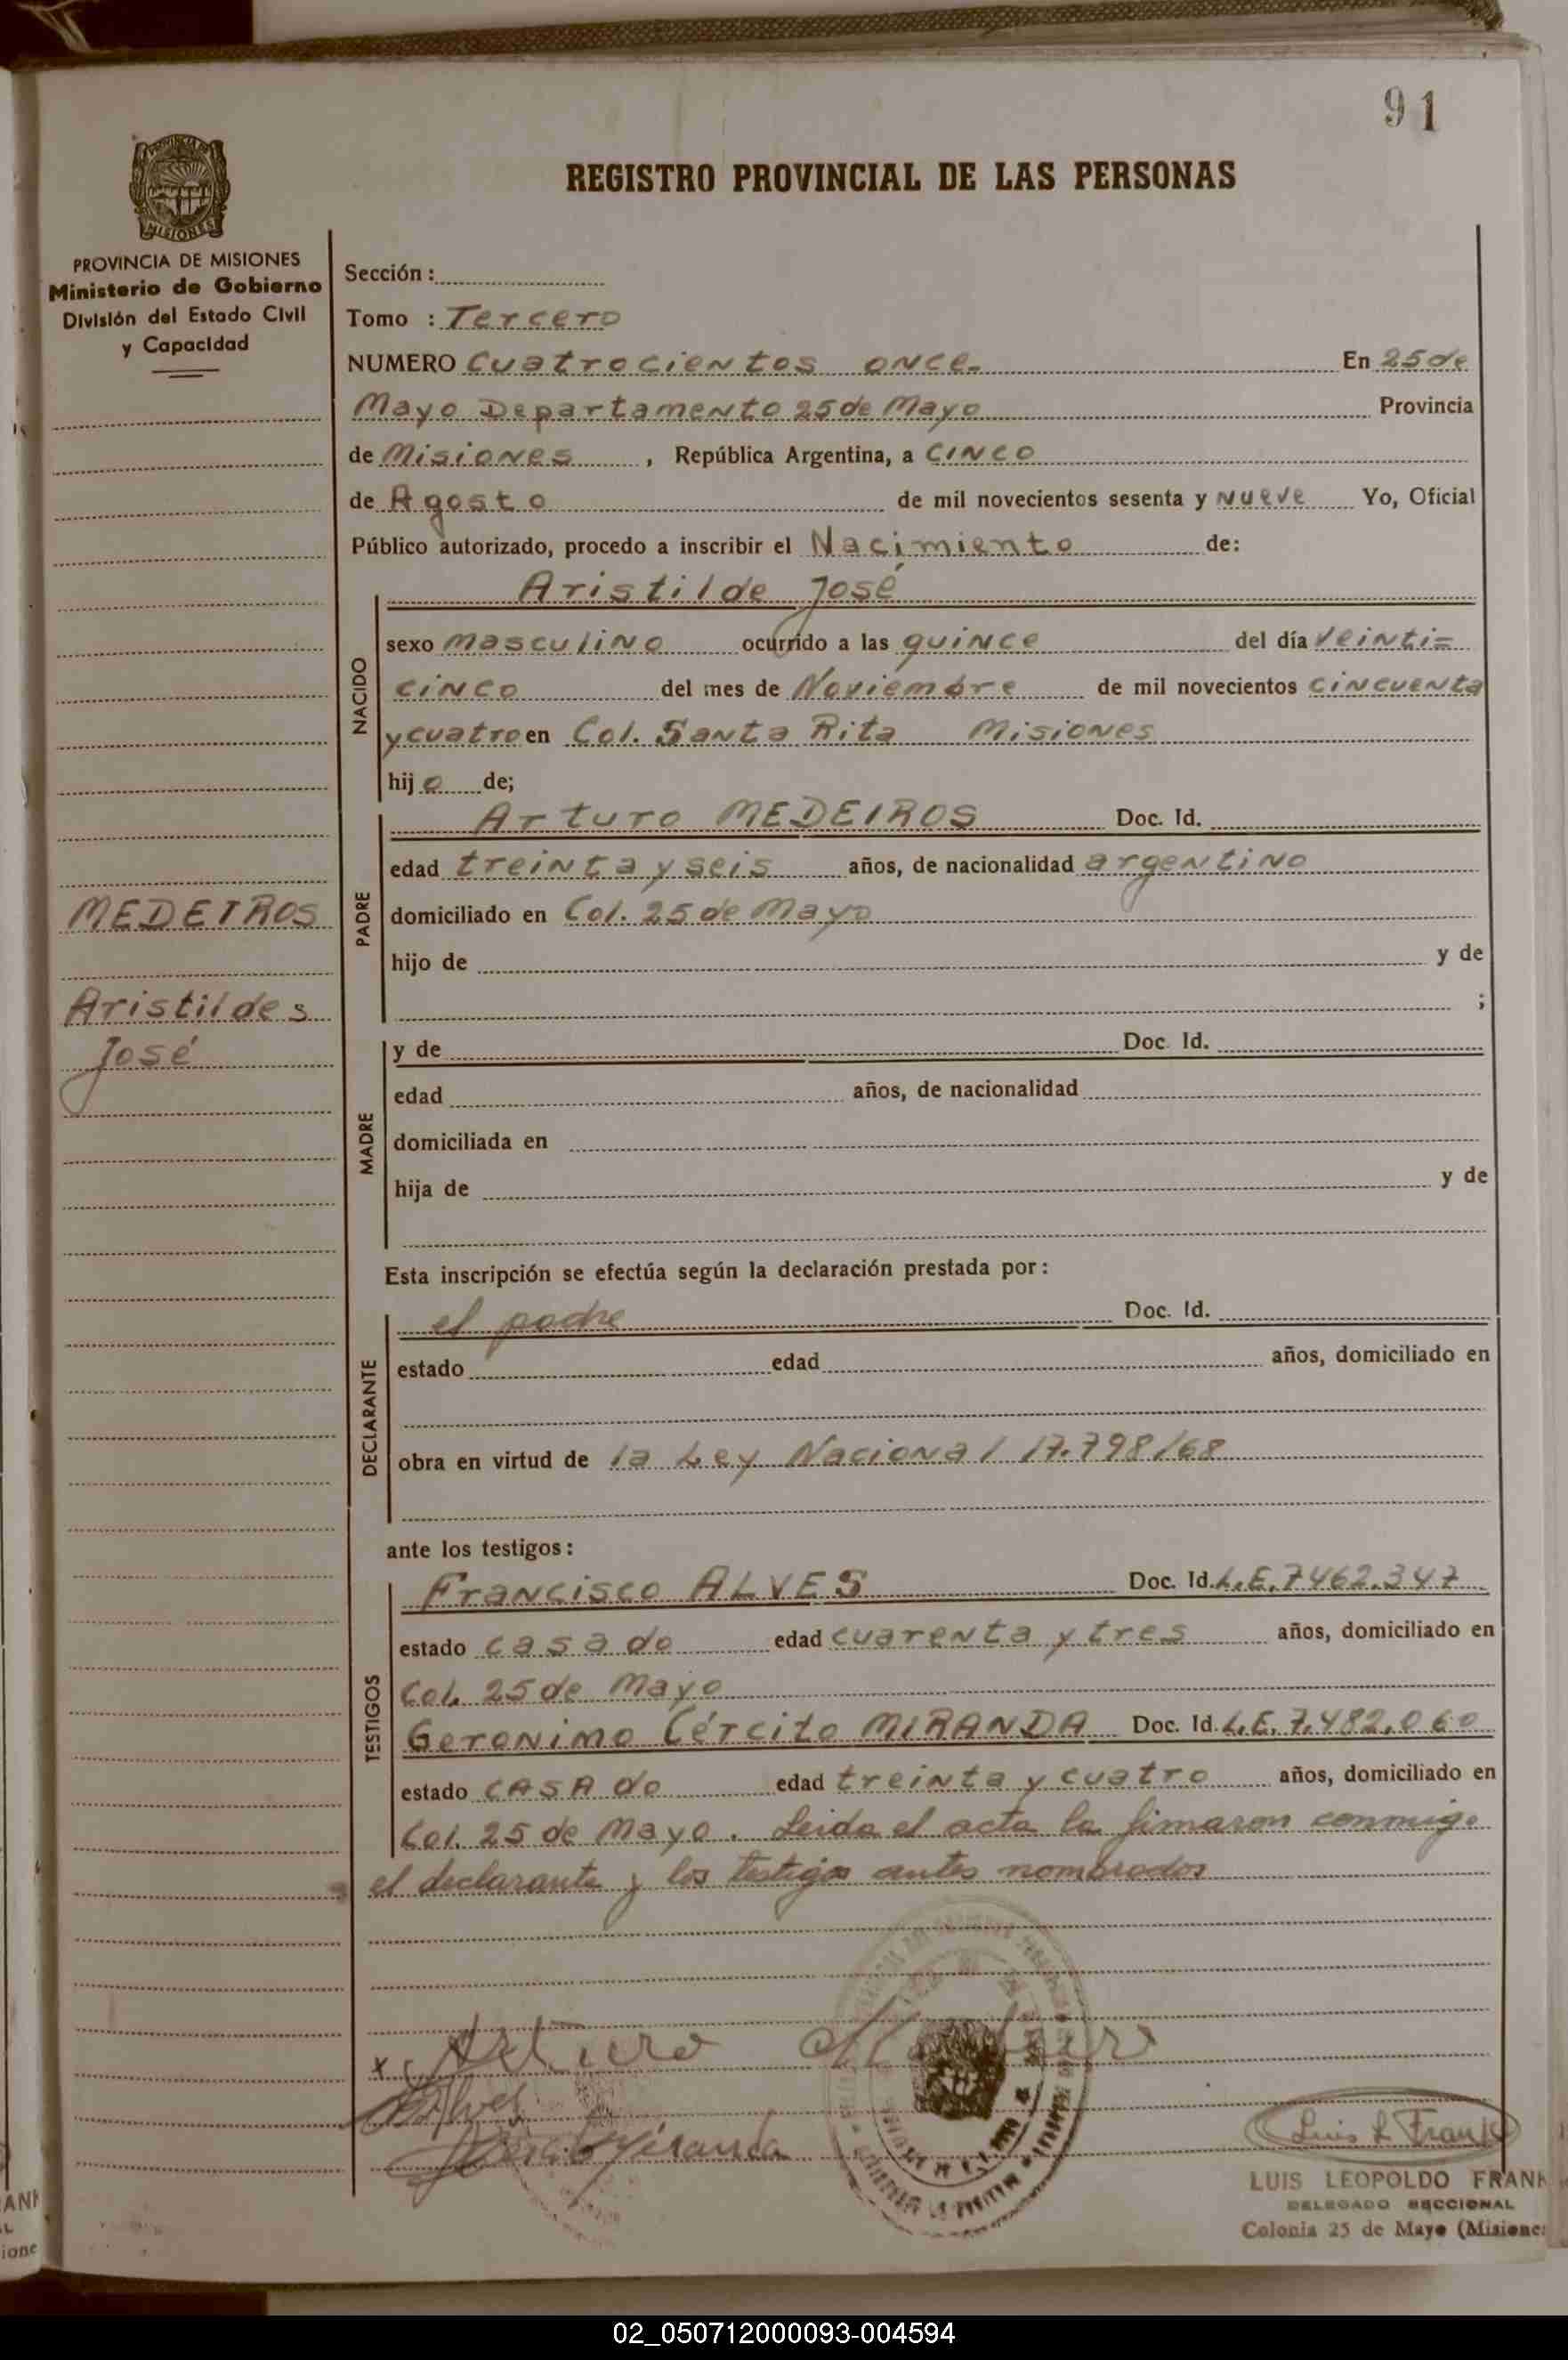 91
PROVINCIA DE
MISIONES
REGISTRO PROVINCIAL DE LAS PERSONAS
PROVINCIA DE MISIONES
Ministerio de Gobierno
División del Estado Civil
y Capacidad
MEDEIROS
Aristildes
José
Sección :
Tomo : Tercero
NUMERO Cuatrocientos once. En 25 de
Mayo Departamento 25 de Mayo Provincia
de Misiones , República Argentina, a CINCO
de Agosto de mil novecientos sesenta y nueve Yo, Oficial
Público autorizado, procedo a inscribir el Nacimiento de:
NACIDO
Aristilde José
sexo masculino ocurrido a las quince del día veinti=
cinco del mes de Noviembre de mil novecientos cincuenta
y cuatro en Col. Santa Rita Misiones
hijo de;
PADRE
Arturo MEDEIROS Doc. Id.
edad treinta y seis años, de nacionalidad argentino
domiciliado en Col. 25 de Mayo
hijo de y de
;
MADRE
y de Doc. Id.
edad años, de nacionalidad
domiciliada en
hija de y de
Esta inscripción se efectúa según la declaración prestada por :
DECLARANTE
el padre Doc. Id.
estado edad años, domiciliado en
obra en virtud de la Ley Nacional 17.798/68
ante los testigos :
TESTIGOS
Francisco ALVES Doc. Id. L.E. 7462.347
estado casado edad cuarenta y tres años, domiciliado en
Col. 25 de Mayo
Geronimo Cército MIRANDA Doc. Id. L.E. 7.482.060
estado CASADO edad treinta y cuatro años, domiciliado en
Col. 25 de Mayo. Leida el acta la fimaron conmigo
el declarante y los testigos antes nombrados
x Arturo
Alves
Miranda
Luis L Frank
LUIS LEOPOLDO FRANK
DELEGADO SECCIONAL
Colonia 25 de Mayo (Misiones
02_050712000093-004594